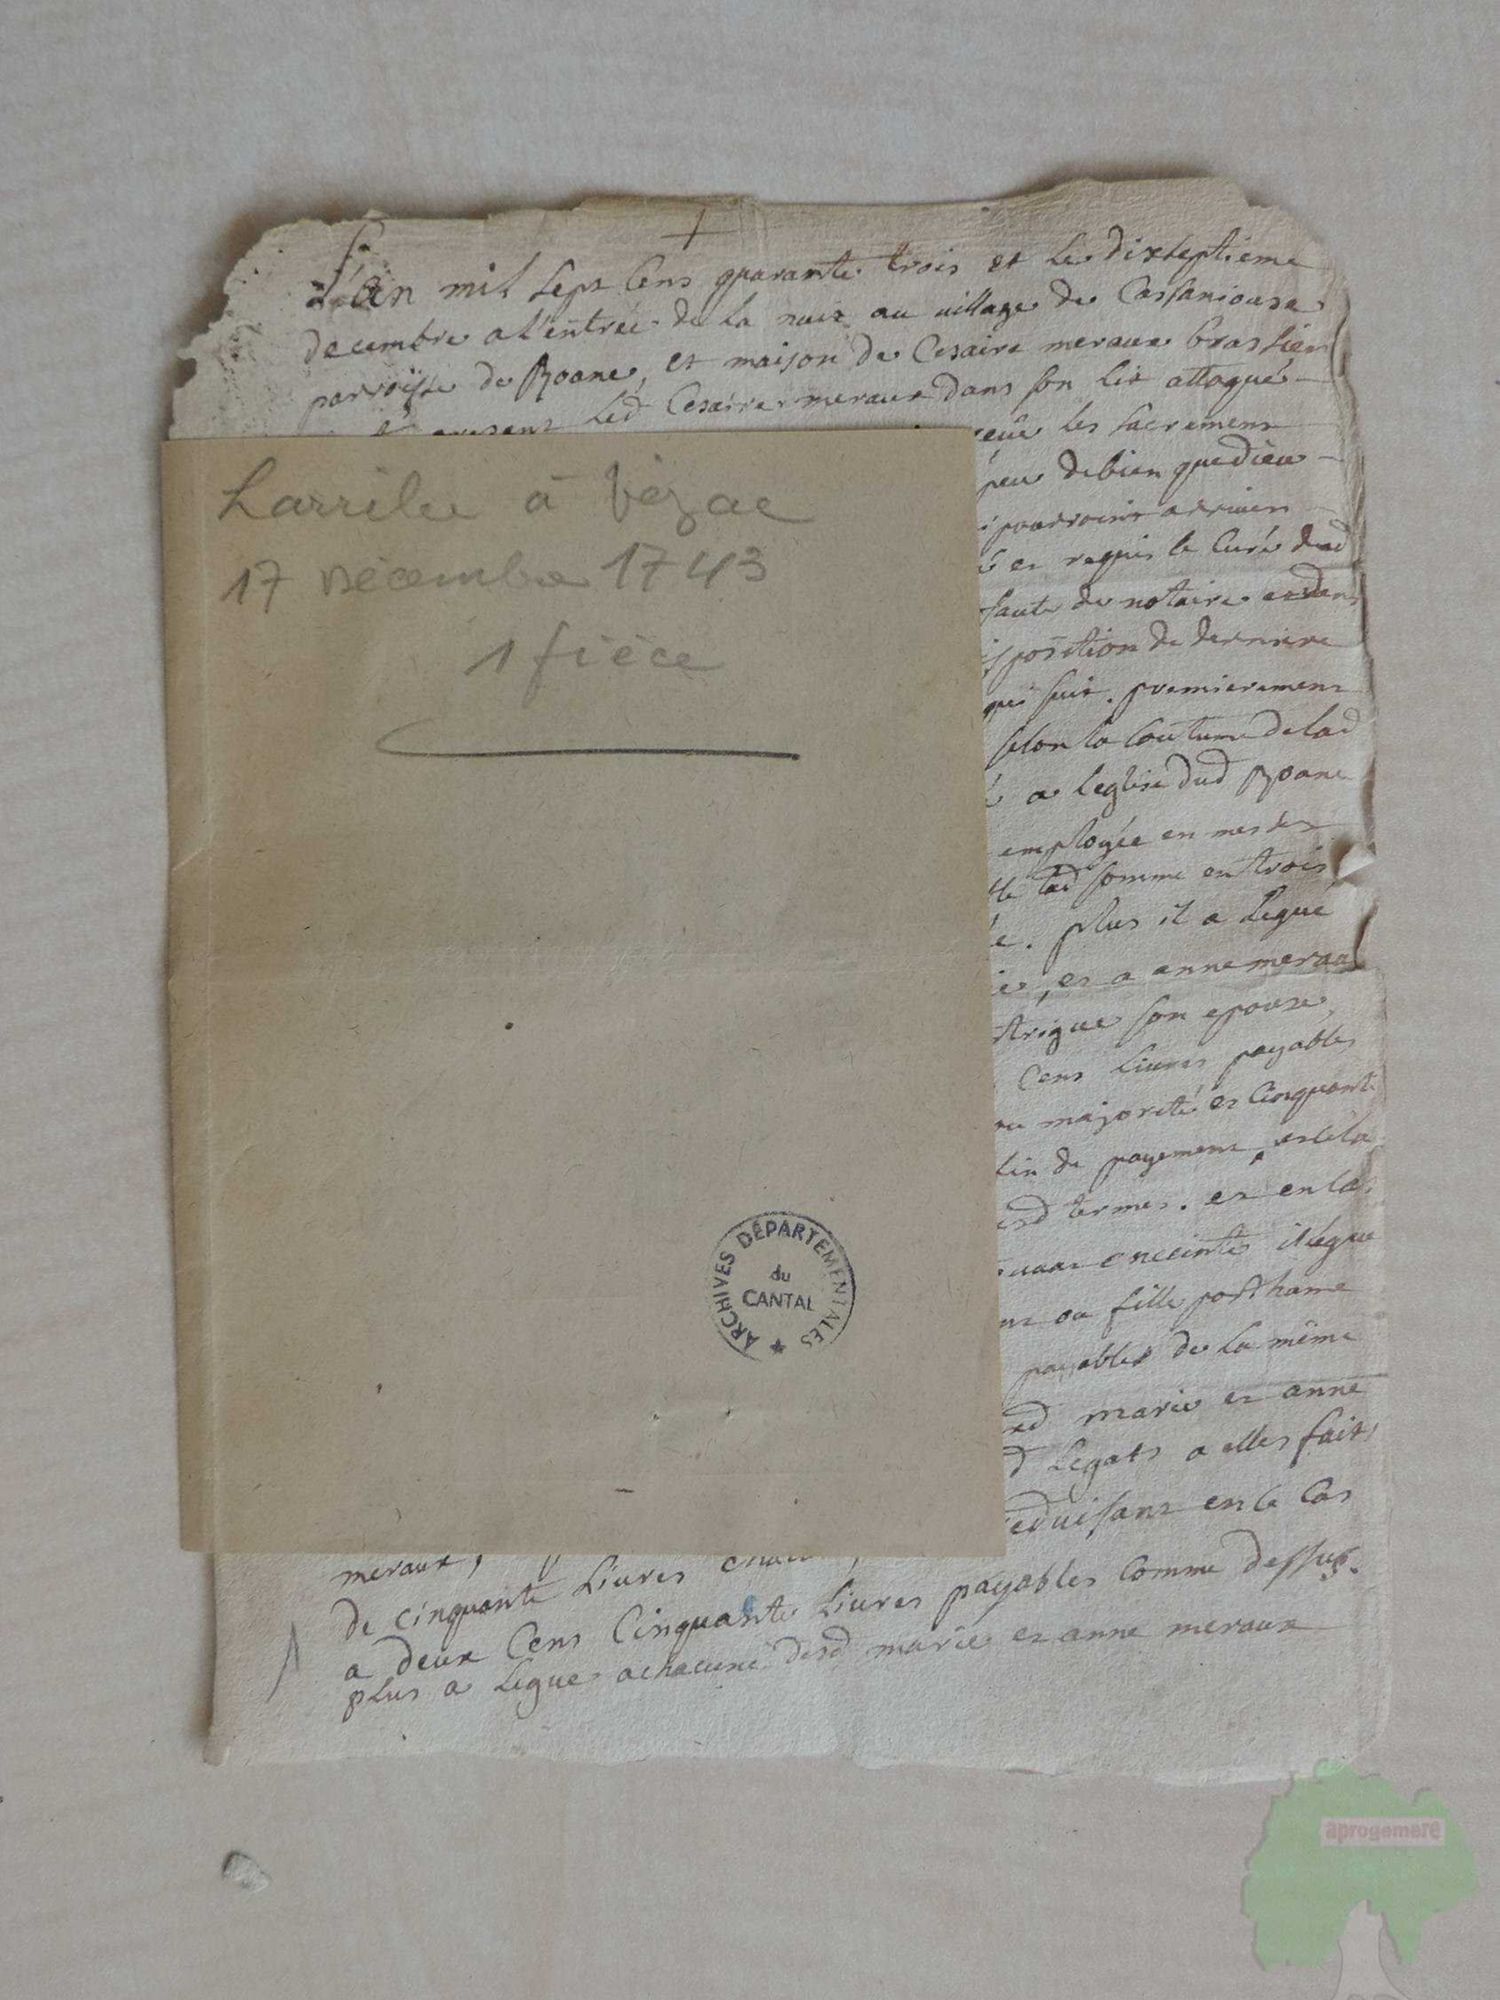 L'an mil sept Cens quarante trois et le dixseptieme
decembre a l'entrée de la nuit au village de Cassaniouse
parroisse de Roane, et maison de Cesaire meraux brassier
present led Cesaire meraux dans son lit attaqué
reçû les sacremens
peu de bien que dieu
pourroint arriver
et requis le Curé dud
faute de notaire et dans
disposition de derniere
qui suit. premierement
selon la Coutume de lad
a Leglise dud Roane
employée en messes
lad somme en trois
plus il a Legué
et a anne meraux
son epouse,
Cens Livres payables
ou majorité et Cinquante
fin de payement, et
d termes. et en
enceinte il legue
ou fille posthume
payables de la même
marie et anne
Legats a elles faits
reduisant en le Cas
meraux,
de Cinquante Livres
a deux Cens Cinquante Livres payables Comme dessus.
plus a Legué a chacune desd marie et anne meraux
Larribe à Vézac
17 Décembre 1743
1 pièce
ARCHIVES DÉPARTEMENTALES
du
CANTAL
aprogemere